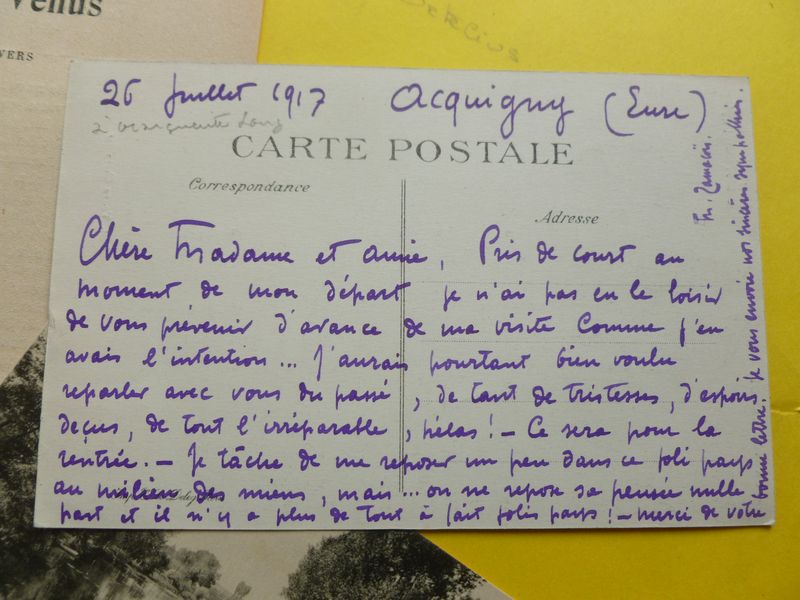 Venus
VERS
26 Juillet 1917 Acquigny (Eure)
à Marguerite Long
CARTE POSTALE
Correspondance
Adresse
Chère Madame et amie, Pris de court au
moment de mon départ je n'ai pas eu le loisir
de vous prévenir d'avance de ma visite comme j'en
avais l'intention... J'aurais pourtant bien voulu
reparler avec vous du passé, de tant de tristesses, d'espoirs
deçus, de tout l'irréparable, hélas! — Ce sera pour la
rentrée. — Je tâche de me reposer un peu dans ce joli pays
au milieu des miens, mais... on ne repose sa pensée nulle
part et il n'y a plus de tout à fait jolis pays! — merci de votre
bonne lettre. Je vous envoie nos sincères sympathies.